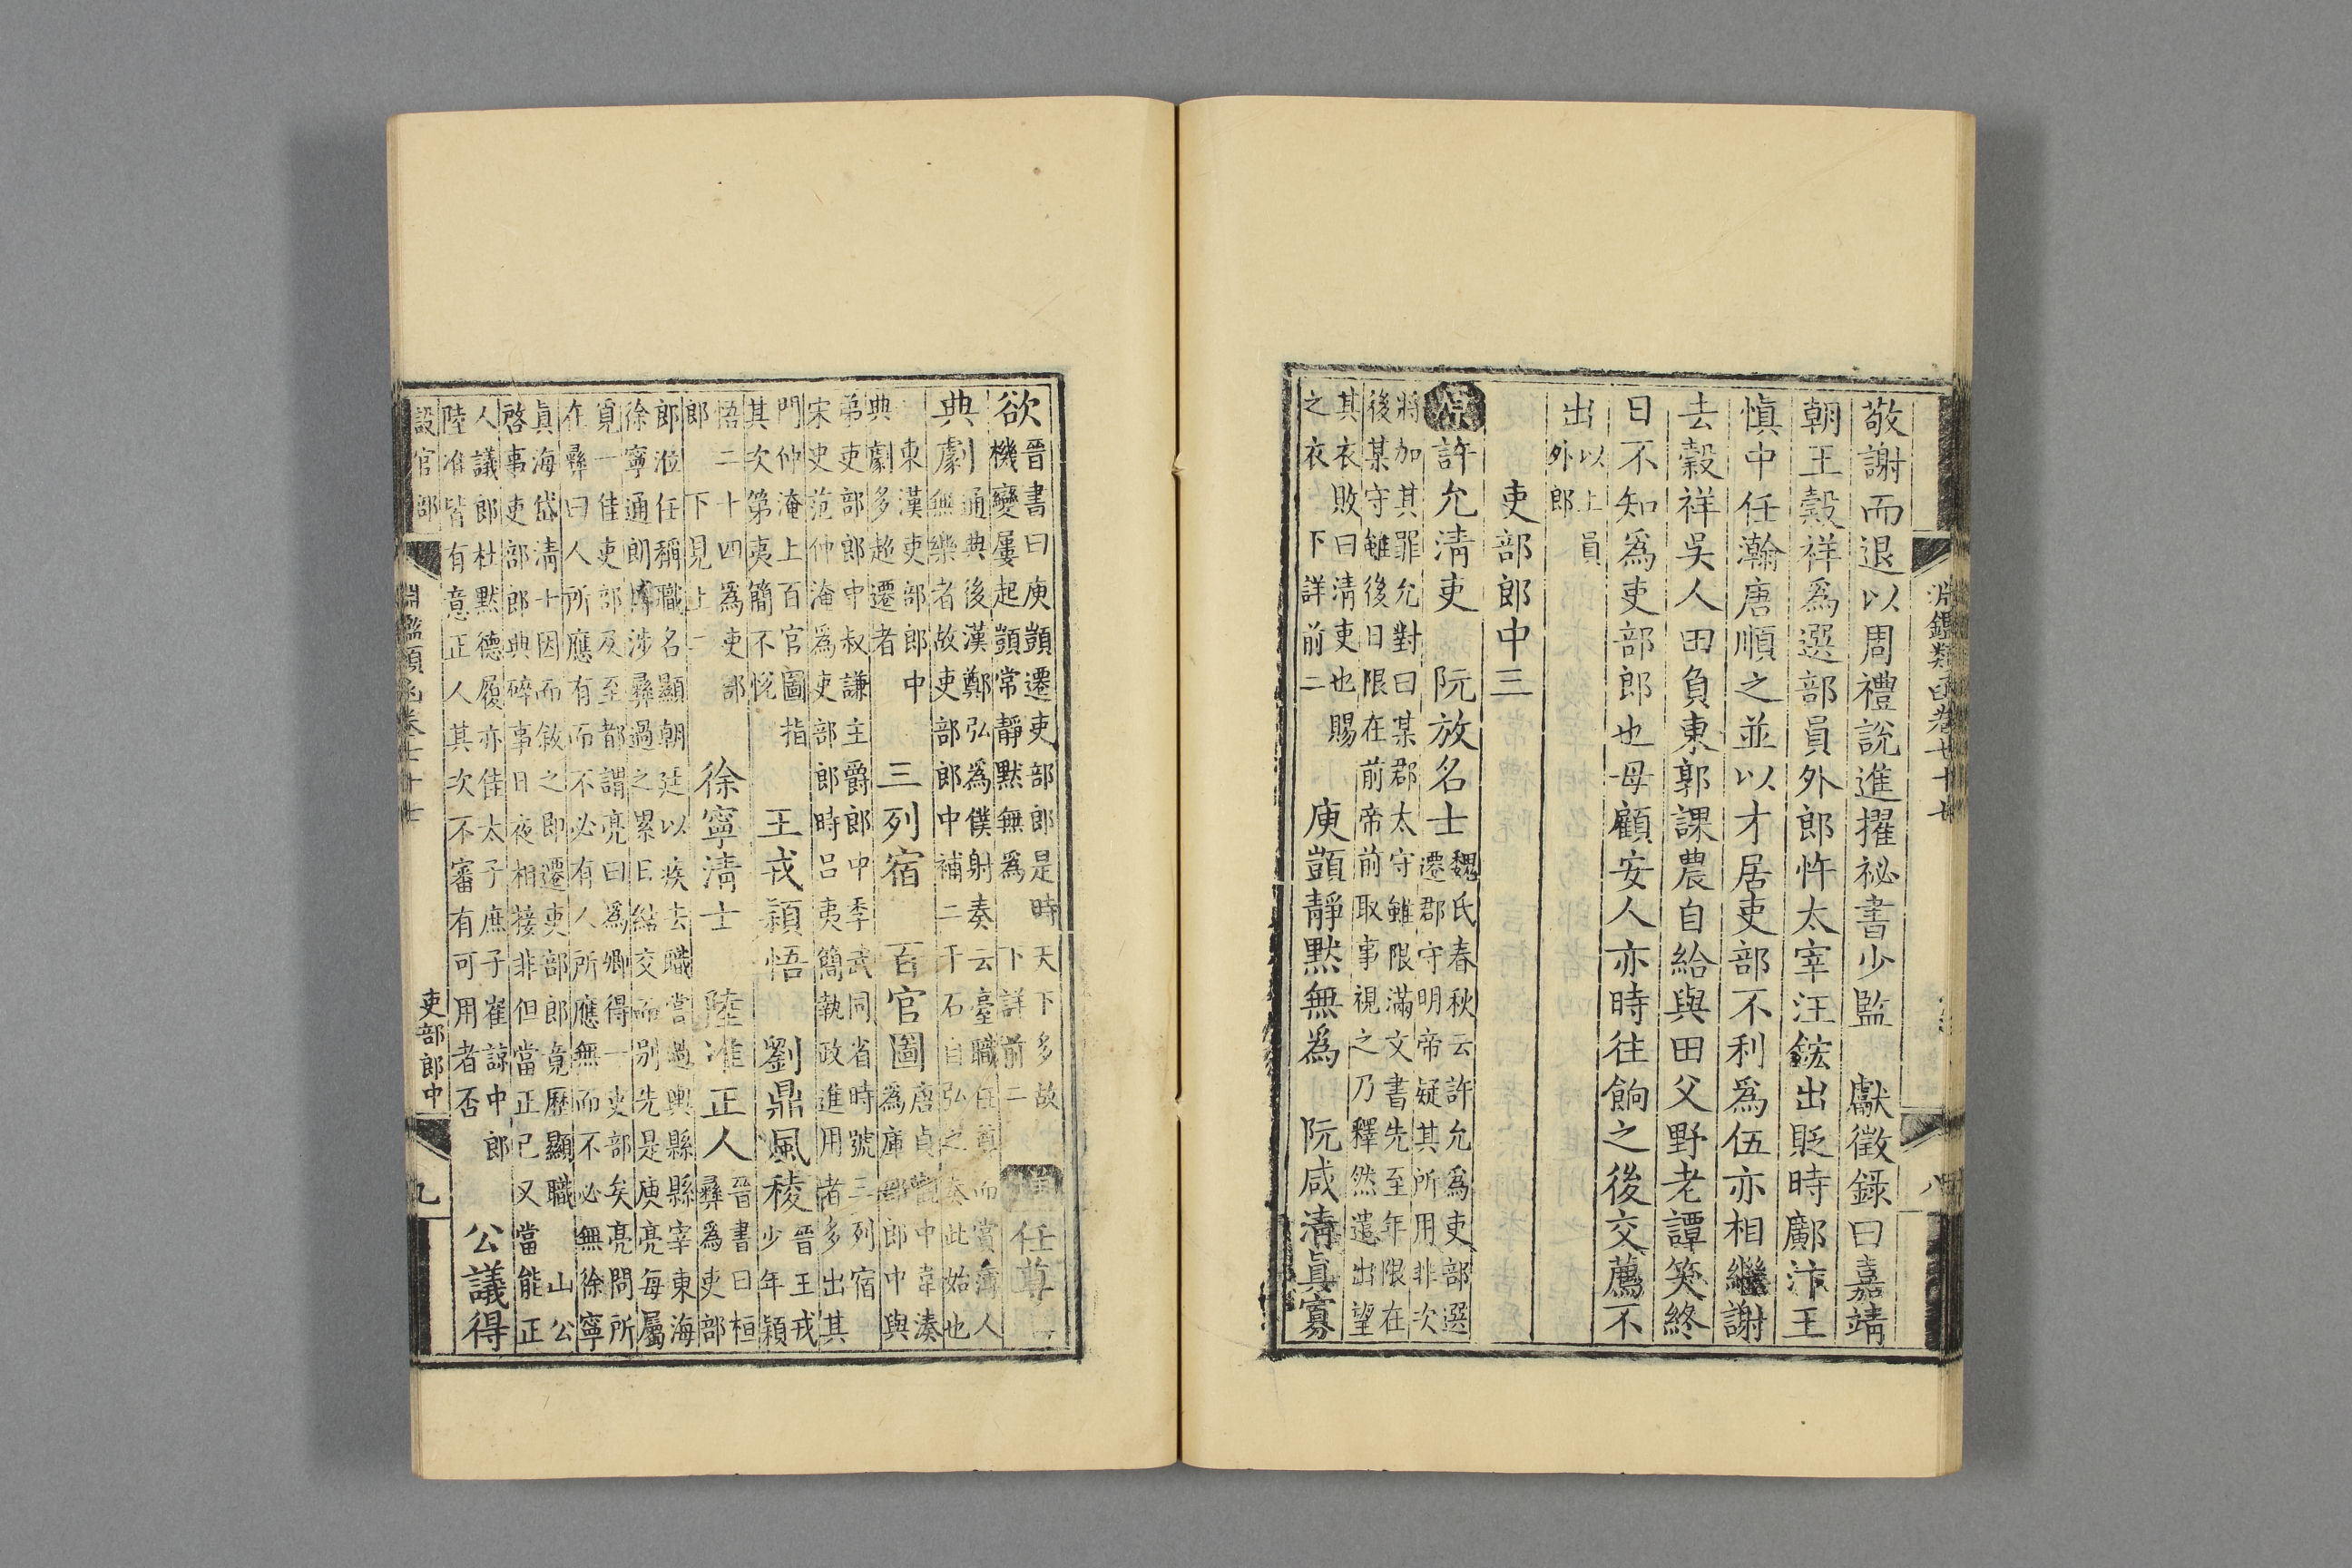 淵鑑類函卷七十七
八
敬謝而退以周禮說進擢祕書少監 獻徵錄曰嘉靖
朝王穀祥爲選部員外郎忤太宰汪鋐出貶時鄺汴王
愼中任瀚唐順之並以才居吏部不利爲伍亦相繼謝
去穀祥吳人田負東郭課農自給與田父野老譚笑終
日不知爲吏部郎也母顧安人亦時往餉之後交薦不
出以上員外郎
吏部郎中三
原許允淸吏 阮放名士魏氏春秋云許允爲吏部選遷郡守明帝疑其所用非次
將加其罪允對曰某郡太守雖限滿文書先至年限在後某守雖後日限在前帝前取事視之乃釋然遣出望
其衣敗曰淸吏也賜之衣 下詳前二 庾顗靜默無爲 阮咸淸眞寡
欲晉書曰庾顗遷吏部郎是時天下多故機變屢起顗常靜默無爲 下詳前二 增任尊
典劇通典後漢鄭弘爲僕射奏云臺職任尊而賞薄人無樂者故吏部郎中補二千石自弘之奏此始也
東漢吏部郎中典劇多超遷者 三列宿 百官圖唐貞觀中韋湊爲庫部郎中與
弟吏部郎中叔謙主爵郎中季武同省時號三列宿宋史范仲淹爲吏部郎時呂夷簡執政進用者多出其
門仲淹上百官圖指其次第夷簡不悅 王戎穎悟 劉鼎風稜晉王戎少年穎
悟二十四爲吏部郎 下見上一 徐寧淸士 陸准正人晉書曰桓彝爲吏部
郎涖任稱職名顯朝廷以疾去職嘗過輿縣縣宰東海徐寧通朗博涉彝過之累日結交而別先是庾亮每屬
覓一佳吏部及至都謂亮曰爲卿得一吏部矣亮問所在彝曰人所應有而不必有人所應無而不必無徐寧
眞海岱淸士因而敘之卽遷吏部郎竟歷顯職 山公啓事吏部郎典碎事日夜相接非但當正已又當能正
人議郎杜默德履亦佳太子庶子崔諒中郎陸准皆有意正人其次不審有可用者否 公議得
設官部
淵鑑類函卷七十七
吏部郎中
九